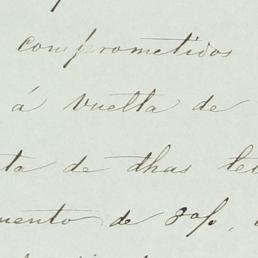 comprometidos
á vuelta de
ta de dhas let
mento de 8%,